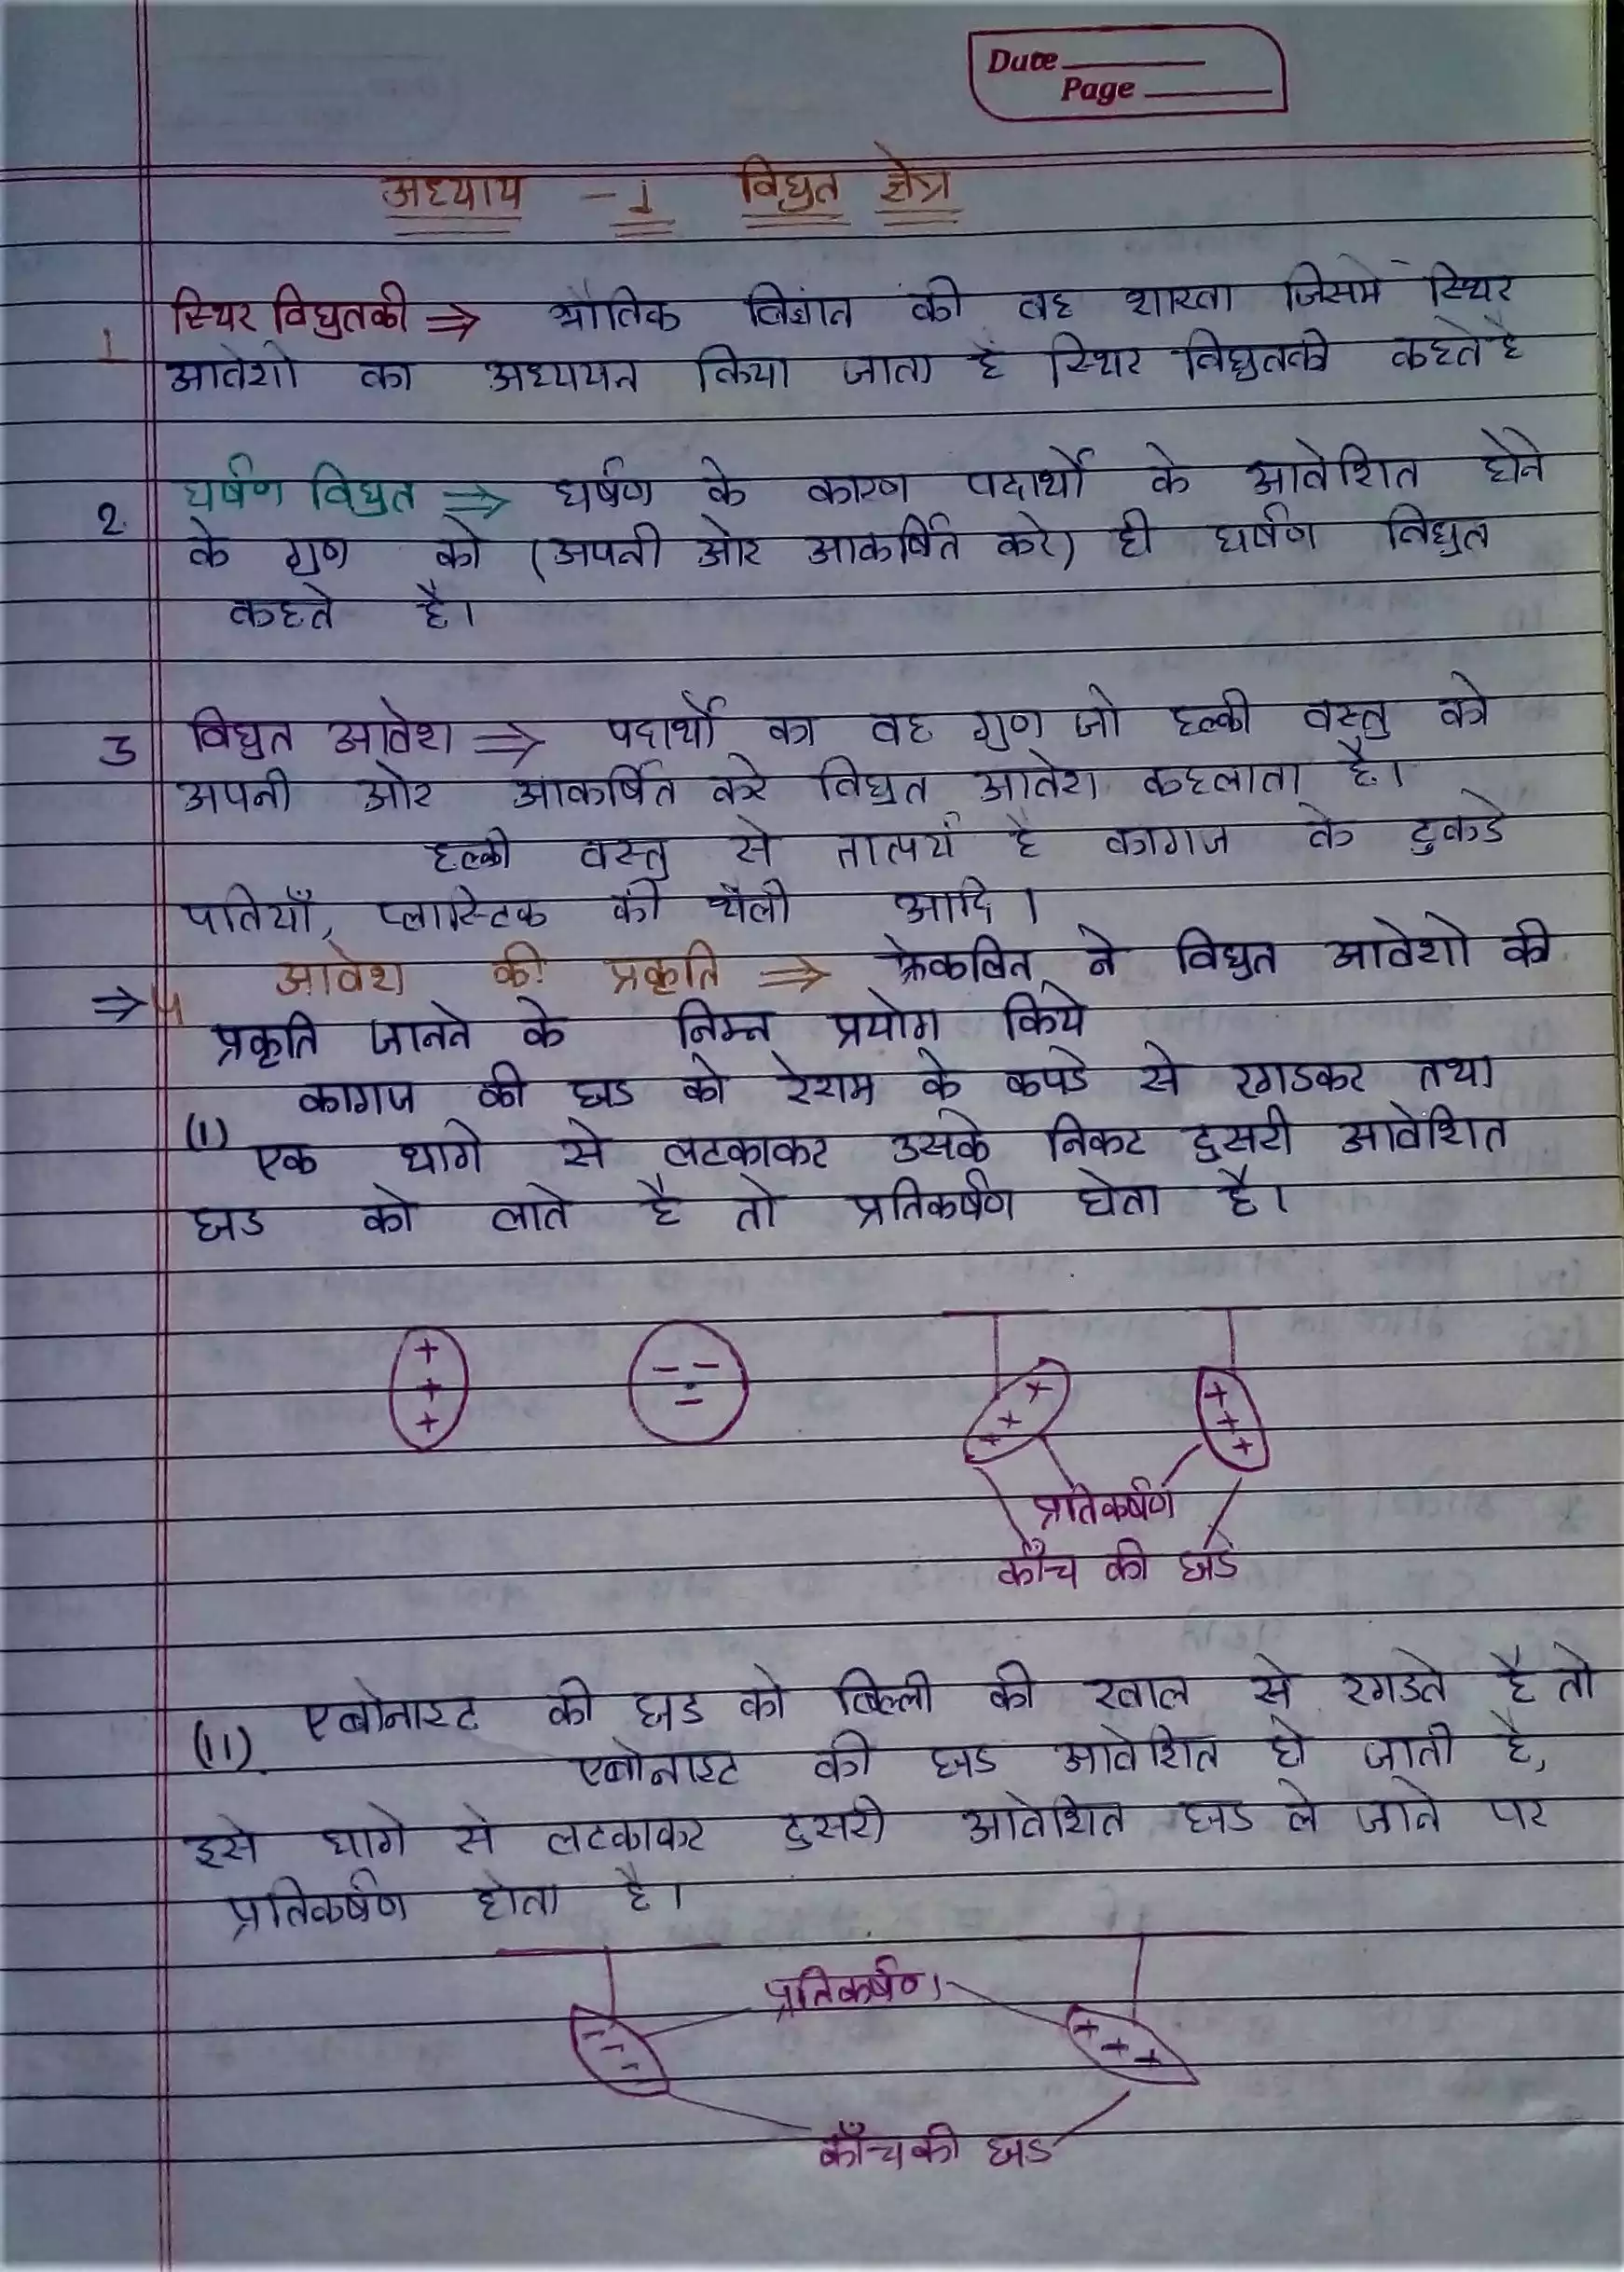 Date
Page
अध्याय - 1 विधुत क्षेत्र
स्थिर विधुतकी ⇒ भौतिक विज्ञान की वह शाखा जिसमे स्थिर
1
आवेशो का अध्ययन किया जाता है स्थिर विधुतकी कहते है
घर्षण विधुत ⇒ घर्षण के कारण पदार्थो के आवेशित होने
2.
के गुण को (अपनी ओर आकर्षित करे) ही घर्षण विधुत
कहते है।
3 विधुत आवेश ⇒ पदार्थो का वह गुण जो हल्की वस्तु को
अपनी ओर आकर्षित करे विधुत आवेश कहलाता है।
हल्की वस्तु से तात्पर्य है कागज के टुकडे
पतियाँ, प्लास्टिक की थैली आदि।
⇒ 4 आवेश की प्रकृति ⇒ ने विधुत आवेशो की
प्रकृति जानने के निम्न प्रयोग किये
कागज की छड को रेशम के कपडे से रगडकर तथा
(1) एक धागे से लटकाकर उसके निकट दुसरी आवेशित
छड को लाते है तो प्रतिकर्षण होता है।
+ + +
- - -
+ + +
+ + +
प्रतिकर्षण
काँच की छडे
एबोनाइट की छड को बिल्ली की खाल से रगडते है तो
(11). एबोनाइट की छड आवेशित हो जाती है,
इसे धागे से लटकाकर दुसरी आवेशित छड ले जाने पर
प्रतिकर्षण होता है।
प्रतिकर्षण
- - -
+ + +
काँच की छड